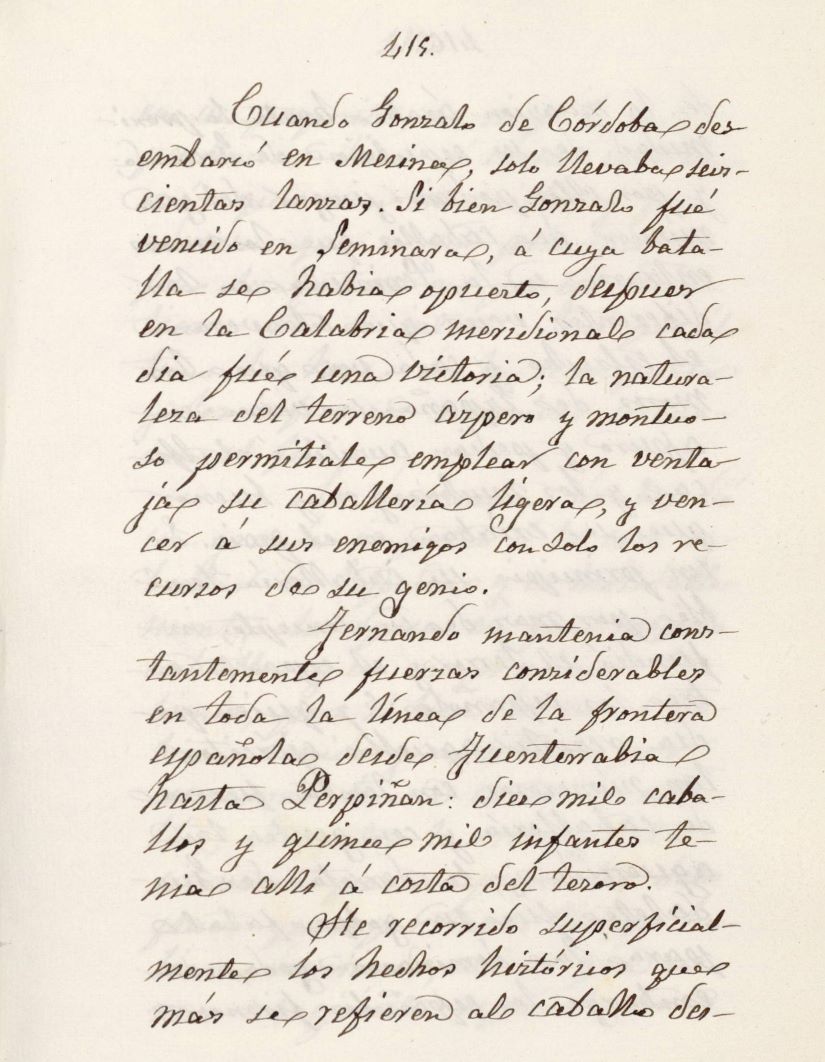 415.
Cuando Gonzalo de Córdoba des
embarcó en Mesina, solo llevaba seis-
cientas lanzas. Si bien Gonzalo fué
vencido en Seminara, á cuya bata-
lla se habia opuesto, despues
en la Calabria meridional cada
dia fué una victoria; la natura-
leza del terreno ázpero y montuo-
so permitiale emplear con venta
ja su caballería ligera, y ven-
cer á sus enemigos con solo los re-
cursos de su genio.
Fernando mantenia cons-
tantemente fuerzas considerables
en toda la línea de la frontera
española desde Fuenterrabia
hasta Perpiñan: diez mil caba-
llos y quince mil infantes te-
nia allí á costa del tezoro.
He recorrido superficial-
mente los hechos históricos que
más se refieren al caballo des-